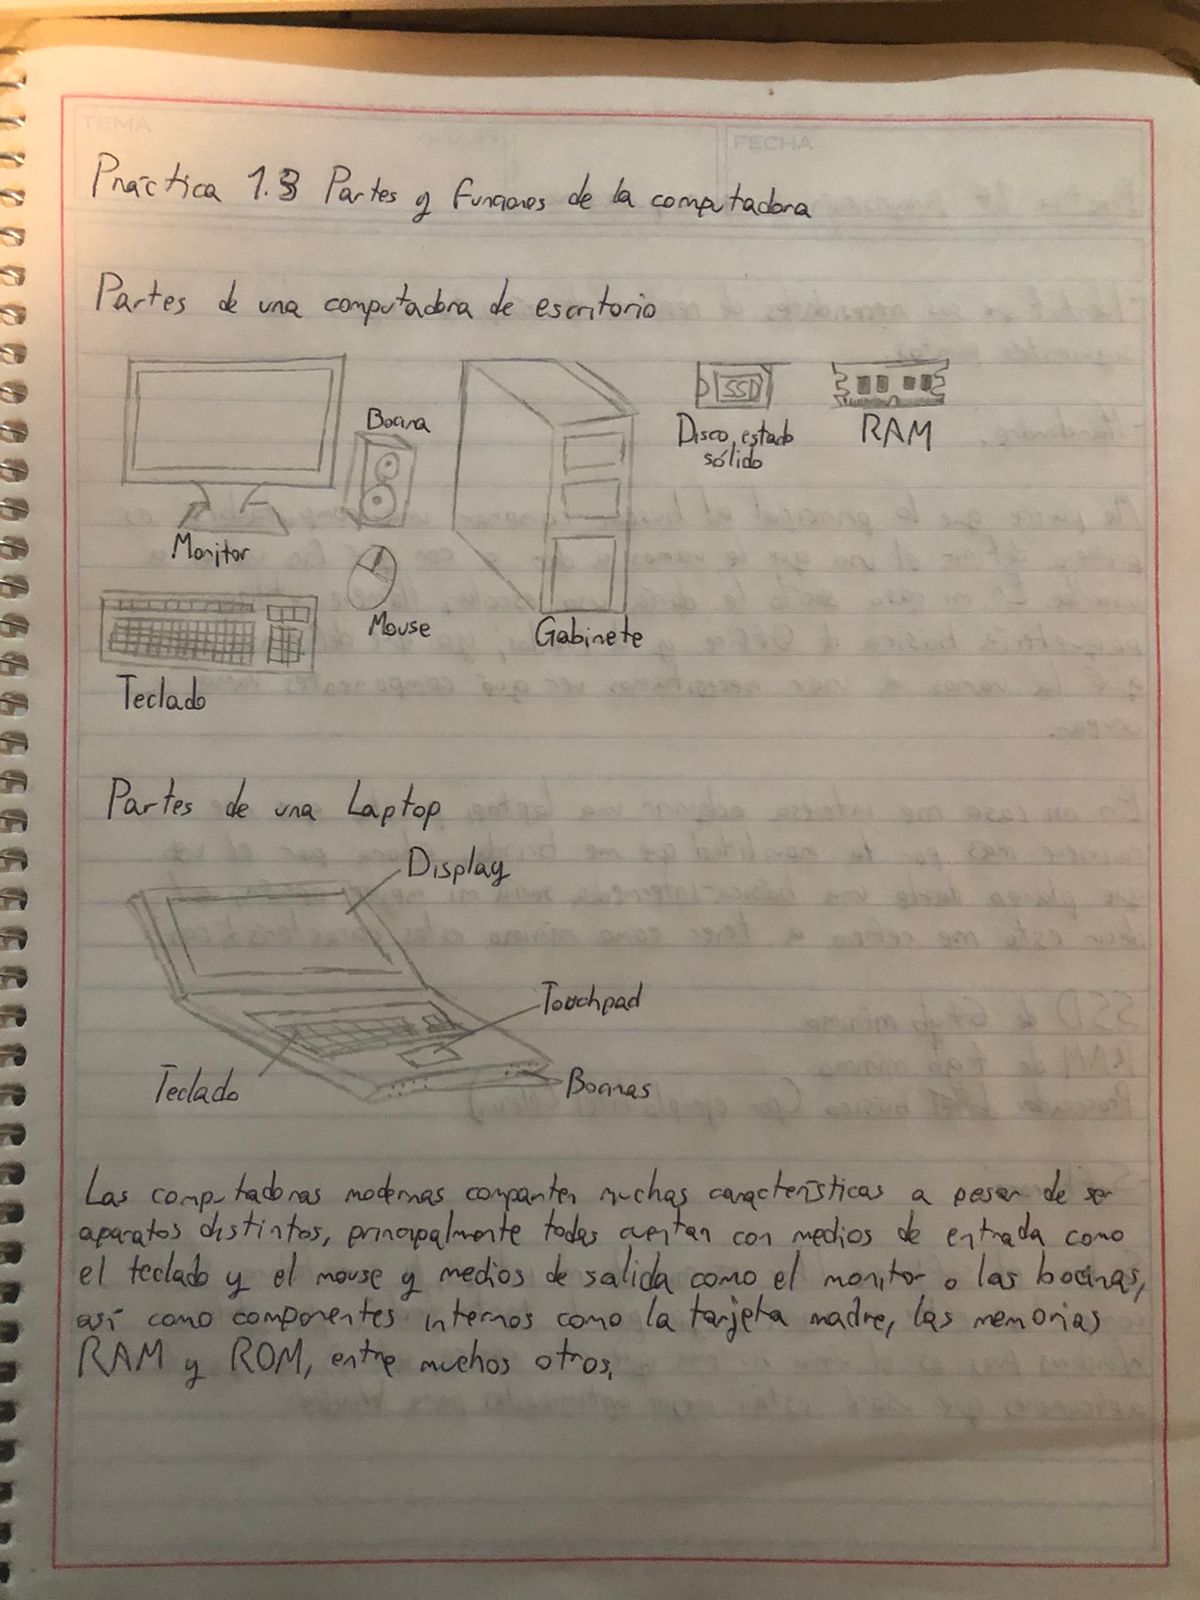 TEMA
FECHA
Práctica 1.3 Partes y funciones de la computadora
Partes de una computadora de escritorio
Bocina
SSD
Disco estado
sólido
RAM
Monitor
Mouse
Gabinete
Teclado
Partes de una Laptop
Display
Touchpad
Teclado
Bocinas
Las computadoras modernas comparten muchas características a pesar de ser
aparatos distintos, principalmente todas cuentan con medios de entrada como
el teclado y el mouse y medios de salida como el monitor o las bocinas,
así como componentes internos como la tarjeta madre, las memorias
RAM y ROM, entre muchos otros.